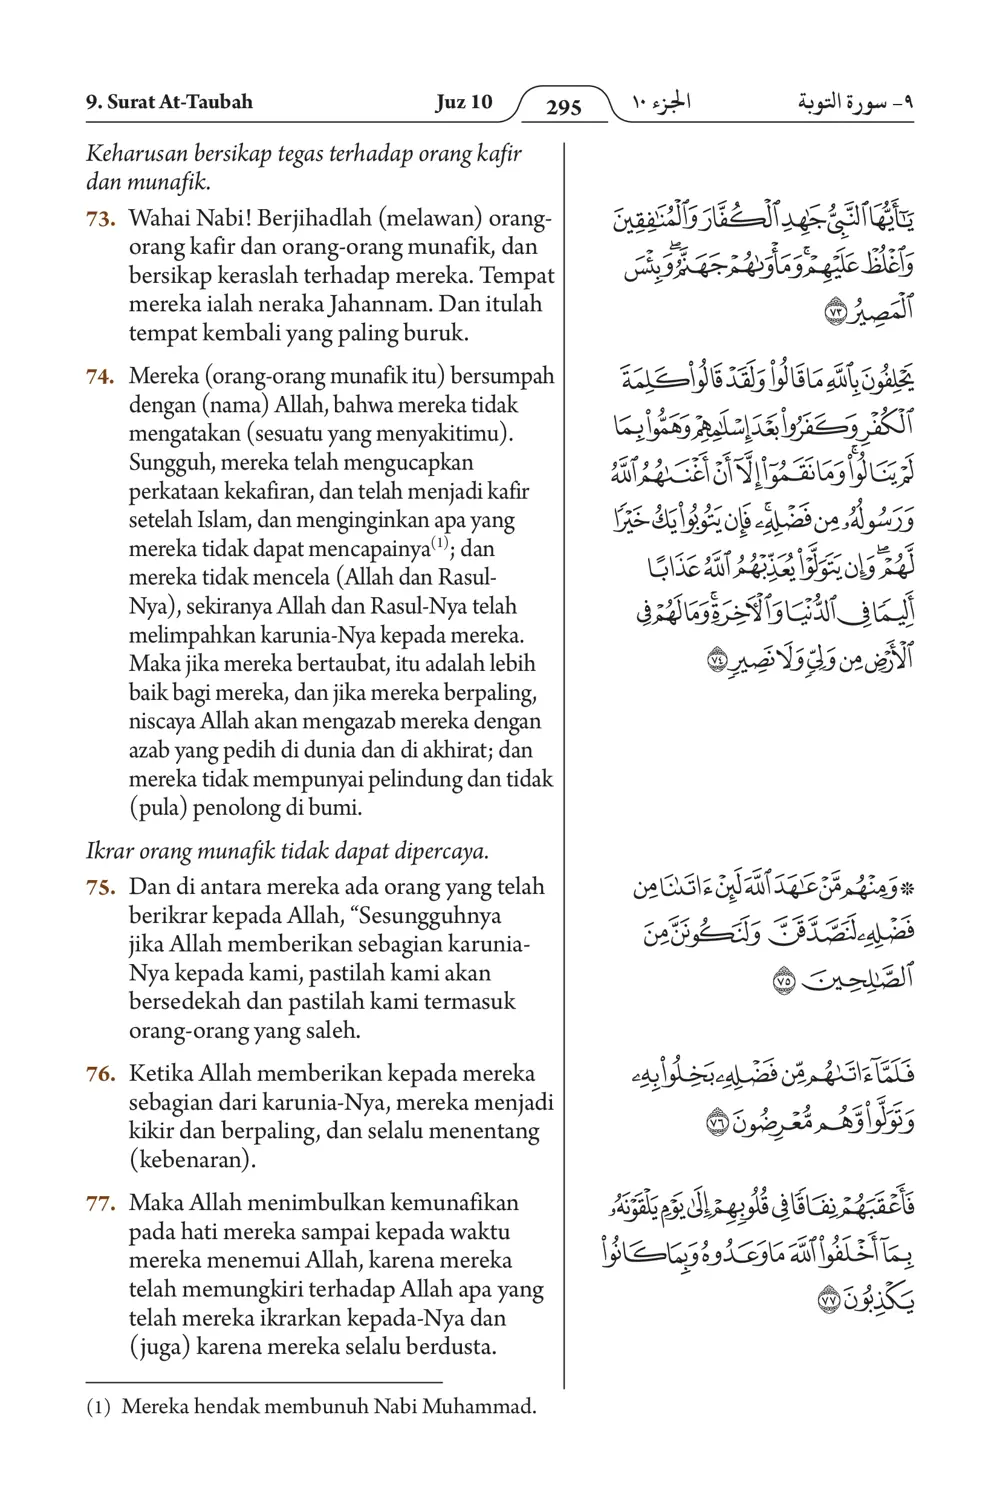 9. Surat At-Taubah
Juz 10
295
الجزء ١٠
٩- سورة التوبة
Keharusan bersikap tegas terhadap orang kafir
dan munafik.
73. Wahai Nabi! Berjihadlah (melawan) orang-
orang kafir dan orang-orang munafik, dan
bersikap keraslah terhadap mereka. Tempat
mereka ialah neraka Jahannam. Dan itulah
tempat kembali yang paling buruk.
74. Mereka (orang-orang munafik itu) bersumpah
dengan (nama) Allah, bahwa mereka tidak
mengatakan (sesuatu yang menyakitimu).
Sungguh, mereka telah mengucapkan
perkataan kekafiran, dan telah menjadi kafir
setelah Islam, dan menginginkan apa yang
mereka tidak dapat mencapainya(1); dan
mereka tidak mencela (Allah dan Rasul-
Nya), sekiranya Allah dan Rasul-Nya telah
melimpahkan karunia-Nya kepada mereka.
Maka jika mereka bertaubat, itu adalah lebih
baik bagi mereka, dan jika mereka berpaling,
niscaya Allah akan mengazab mereka dengan
azab yang pedih di dunia dan di akhirat; dan
mereka tidak mempunyai pelindung dan tidak
(pula) penolong di bumi.
Ikrar orang munafik tidak dapat dipercaya.
75. Dan di antara mereka ada orang yang telah
berikrar kepada Allah, “Sesungguhnya
jika Allah memberikan sebagian karunia-
Nya kepada kami, pastilah kami akan
bersedekah dan pastilah kami termasuk
orang-orang yang saleh.
76. Ketika Allah memberikan kepada mereka
sebagian dari karunia-Nya, mereka menjadi
kikir dan berpaling, dan selalu menentang
(kebenaran).
77. Maka Allah menimbulkan kemunafikan
pada hati mereka sampai kepada waktu
mereka menemui Allah, karena mereka
telah memungkiri terhadap Allah apa yang
telah mereka ikrarkan kepada-Nya dan
(juga) karena mereka selalu berdusta.
يَٰٓأَيُّهَا ٱلنَّبِيُّ جَٰهِدِ ٱلۡكُفَّارَ وَٱلۡمُنَٰفِقِينَ
وَٱغۡلُظۡ عَلَيۡهِمۡۚ وَمَأۡوَىٰهُمۡ جَهَنَّمُۖ وَبِئۡسَ
ٱلۡمَصِيرُ ٧٣
يَحۡلِفُونَ بِٱللَّهِ مَا قَالُواْ وَلَقَدۡ قَالُواْ كَلِمَةَ
ٱلۡكُفۡرِ وَكَفَرُواْ بَعۡدَ إِسۡلَٰمِهِمۡ وَهَمُّواْ بِمَا
لَمۡ يَنَالُواْۚ وَمَا نَقَمُوٓاْ إِلَّآ أَنۡ أَغۡنَىٰهُمُ ٱللَّهُ
وَرَسُولُهُۥ مِن فَضۡلِهِۦۚ فَإِن يَتُوبُواْ يَكُ خَيۡرٗا
لَّهُمۡۖ وَإِن يَتَوَلَّوۡاْ يُعَذِّبۡهُمُ ٱللَّهُ عَذَابًا
أَلِيمٗا فِي ٱلدُّنۡيَا وَٱلۡأٓخِرَةِۚ وَمَا لَهُمۡ فِي
ٱلۡأَرۡضِ مِن وَلِيّٖ وَلَا نَصِيرٖ ٧٤
۞ وَمِنۡهُم مَّنۡ عَٰهَدَ ٱللَّهَ لَئِنۡ ءَاتَىٰنَا مِن
فَضۡلِهِۦ لَنَصَّدَّقَنَّ وَلَنَكُونَنَّ مِنَ
ٱلصَّٰلِحِينَ ٧٥
فَلَمَّآ ءَاتَىٰهُم مِّن فَضۡلِهِۦ بَخِلُواْ بِهِۦ
وَتَوَلَّواْ وَّهُم مُّعۡرِضُونَ ٧٦
فَأَعۡقَبَهُمۡ نِفَاقٗا فِي قُلُوبِهِمۡ إِلَىٰ يَوۡمِ يَلۡقَوۡنَهُۥ
بِمَآ أَخۡلَفُواْ ٱللَّهَ مَا وَعَدُوهُ وَبِمَا كَانُواْ
يَكۡذِبُونَ ٧٧
(1) Mereka hendak membunuh Nabi Muhammad.